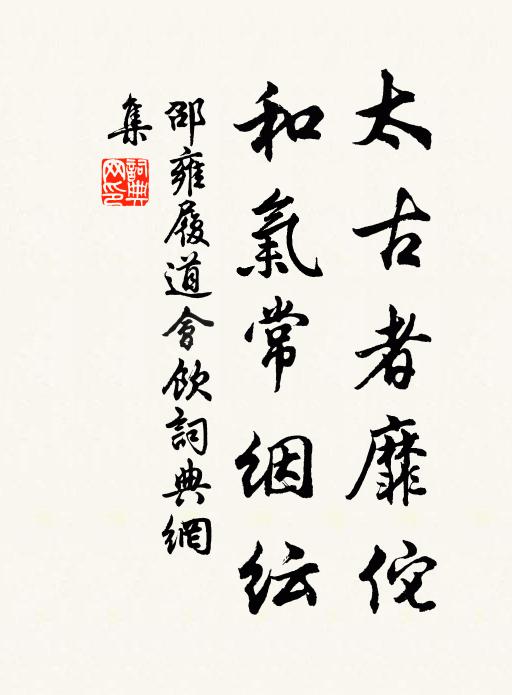 太古者靡侘
和氣常絪紜
邵雍履道會飲詞典網
集
詞典
网印